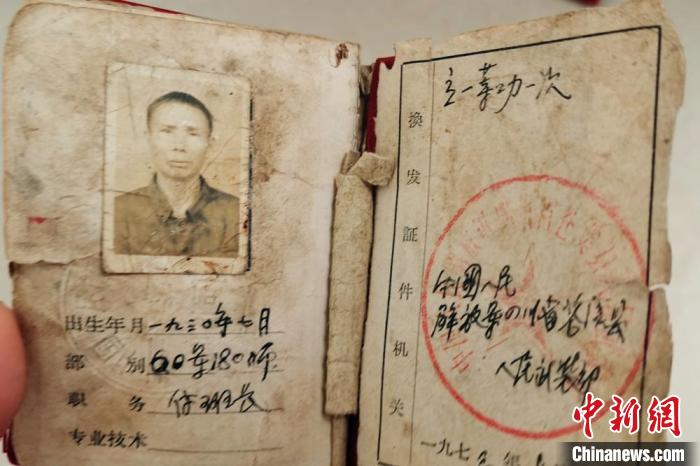 出生年月 一九三〇年七月
部别 60军180师
职务 付班长
专业技术
立一等功一次
换发证件机关
中國人民
解放军四川省苍溪县
人民武装部
一九七
中新网
Chinanews.com